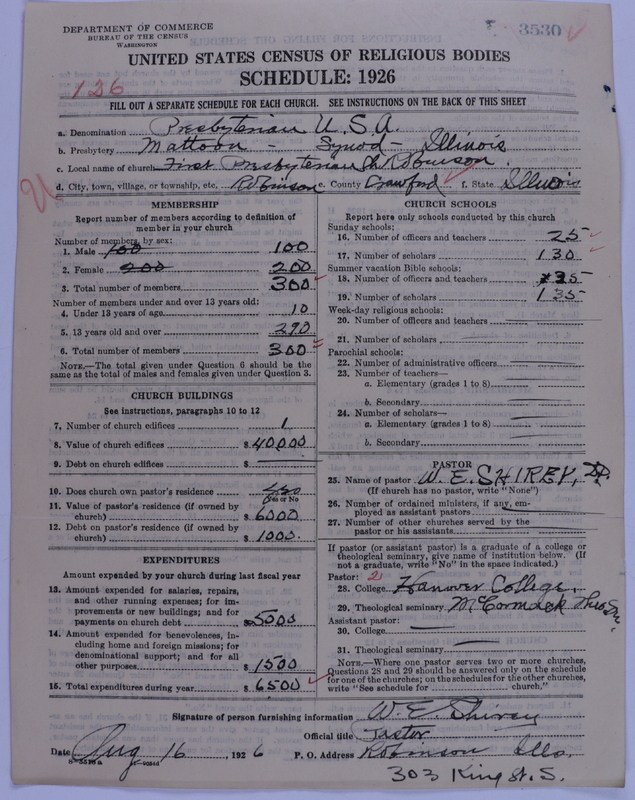 DEPARTMENT OF COMMERCE
BUREAU OF THE CENSUS
WASHINGTON
3530
UNITED STATES CENSUS OF RELIGIOUS BODIES
SCHEDULE: 1926
126
FILL OUT A SEPARATE SCHEDULE FOR EACH CHURCH. SEE INSTRUCTIONS ON THE BACK OF THIS SHEET
a. Denomination Presbyterian U.S.A.
b. Presbytery Mattoon - Synod - Illinois
c. Local name of church First Presbyterian Ch. Robinson.
d. City, town, village, or township, etc. Robinson e. County Crawford f. State Illinois
MEMBERSHIP
Report number of members according to definition of member in your church
Number of members, by sex:
1. Male 100 100
2. Female 200 200
3. Total number of members 300
Number of members under and over 13 years old:
4. Under 13 years of age 10
5. 13 years old and over 290
6. Total number of members 300
NOTE.—The total given under Question 6 should be the same as the total of males and females given under Question 3.
CHURCH BUILDINGS
See instructions, paragraphs 10 to 12
7. Number of church edifices 1
8. Value of church edifices $ 40000
9. Debt on church edifices $
10. Does church own pastor's residence
(Yes or No
11. Value of pastor's residence (if owned by church) $ 6000
12. Debt on pastor's residence (if owned by church) $ 1000.
EXPENDITURES
Amount expended by your church during last fiscal year
13. Amount expended for salaries, repairs, and other running expenses; for improvements or new buildings; and for payments on church debt $ 5000
14. Amount expended for benevolences, including home and foreign missions; for denominational support; and for all other purposes $ 1500
15. Total expenditures during year $ 6500
CHURCH SCHOOLS
Report here only schools conducted by this church
Sunday schools:
16. Number of officers and teachers 25
17. Number of scholars 130
Summer vacation Bible schools:
18. Number of officers and teachers
19. Number of scholars 135
Week-day religious schools:
20. Number of officers and teachers
21. Number of scholars
Parochial schools:
22. Number of administrative officers
23. Number of teachers—
a. Elementary (grades 1 to 8)
b. Secondary
24. Number of scholars—
a. Elementary (grades 1 to 8)
b. Secondary
PASTOR
25. Name of pastor W. E. SHIREY, D.D.
(If church has no pastor, write "None")
26. Number of ordained ministers, if any, employed as assistant pastors
27. Number of other churches served by the pastor or his assistants
If pastor (or assistant pastor) is a graduate of a college or theological seminary, give name of institution below. (If not a graduate, write "No" in the space indicated.)
Pastor: 2
28. College Hanover College
29. Theological seminary McCormack
Assistant pastor:
30. College
31. Theological seminary
NOTE.—Where one pastor serves two or more churches, Questions 28 and 29 should be answered only on the schedule for one of the churches; on the schedules for the other churches, write "See schedule for church."
Signature of person furnishing information W. E. Shirey
Official title Pastor
Date Aug 16, 1926 P. O. Address Robinson Ills.
303 King St. S.